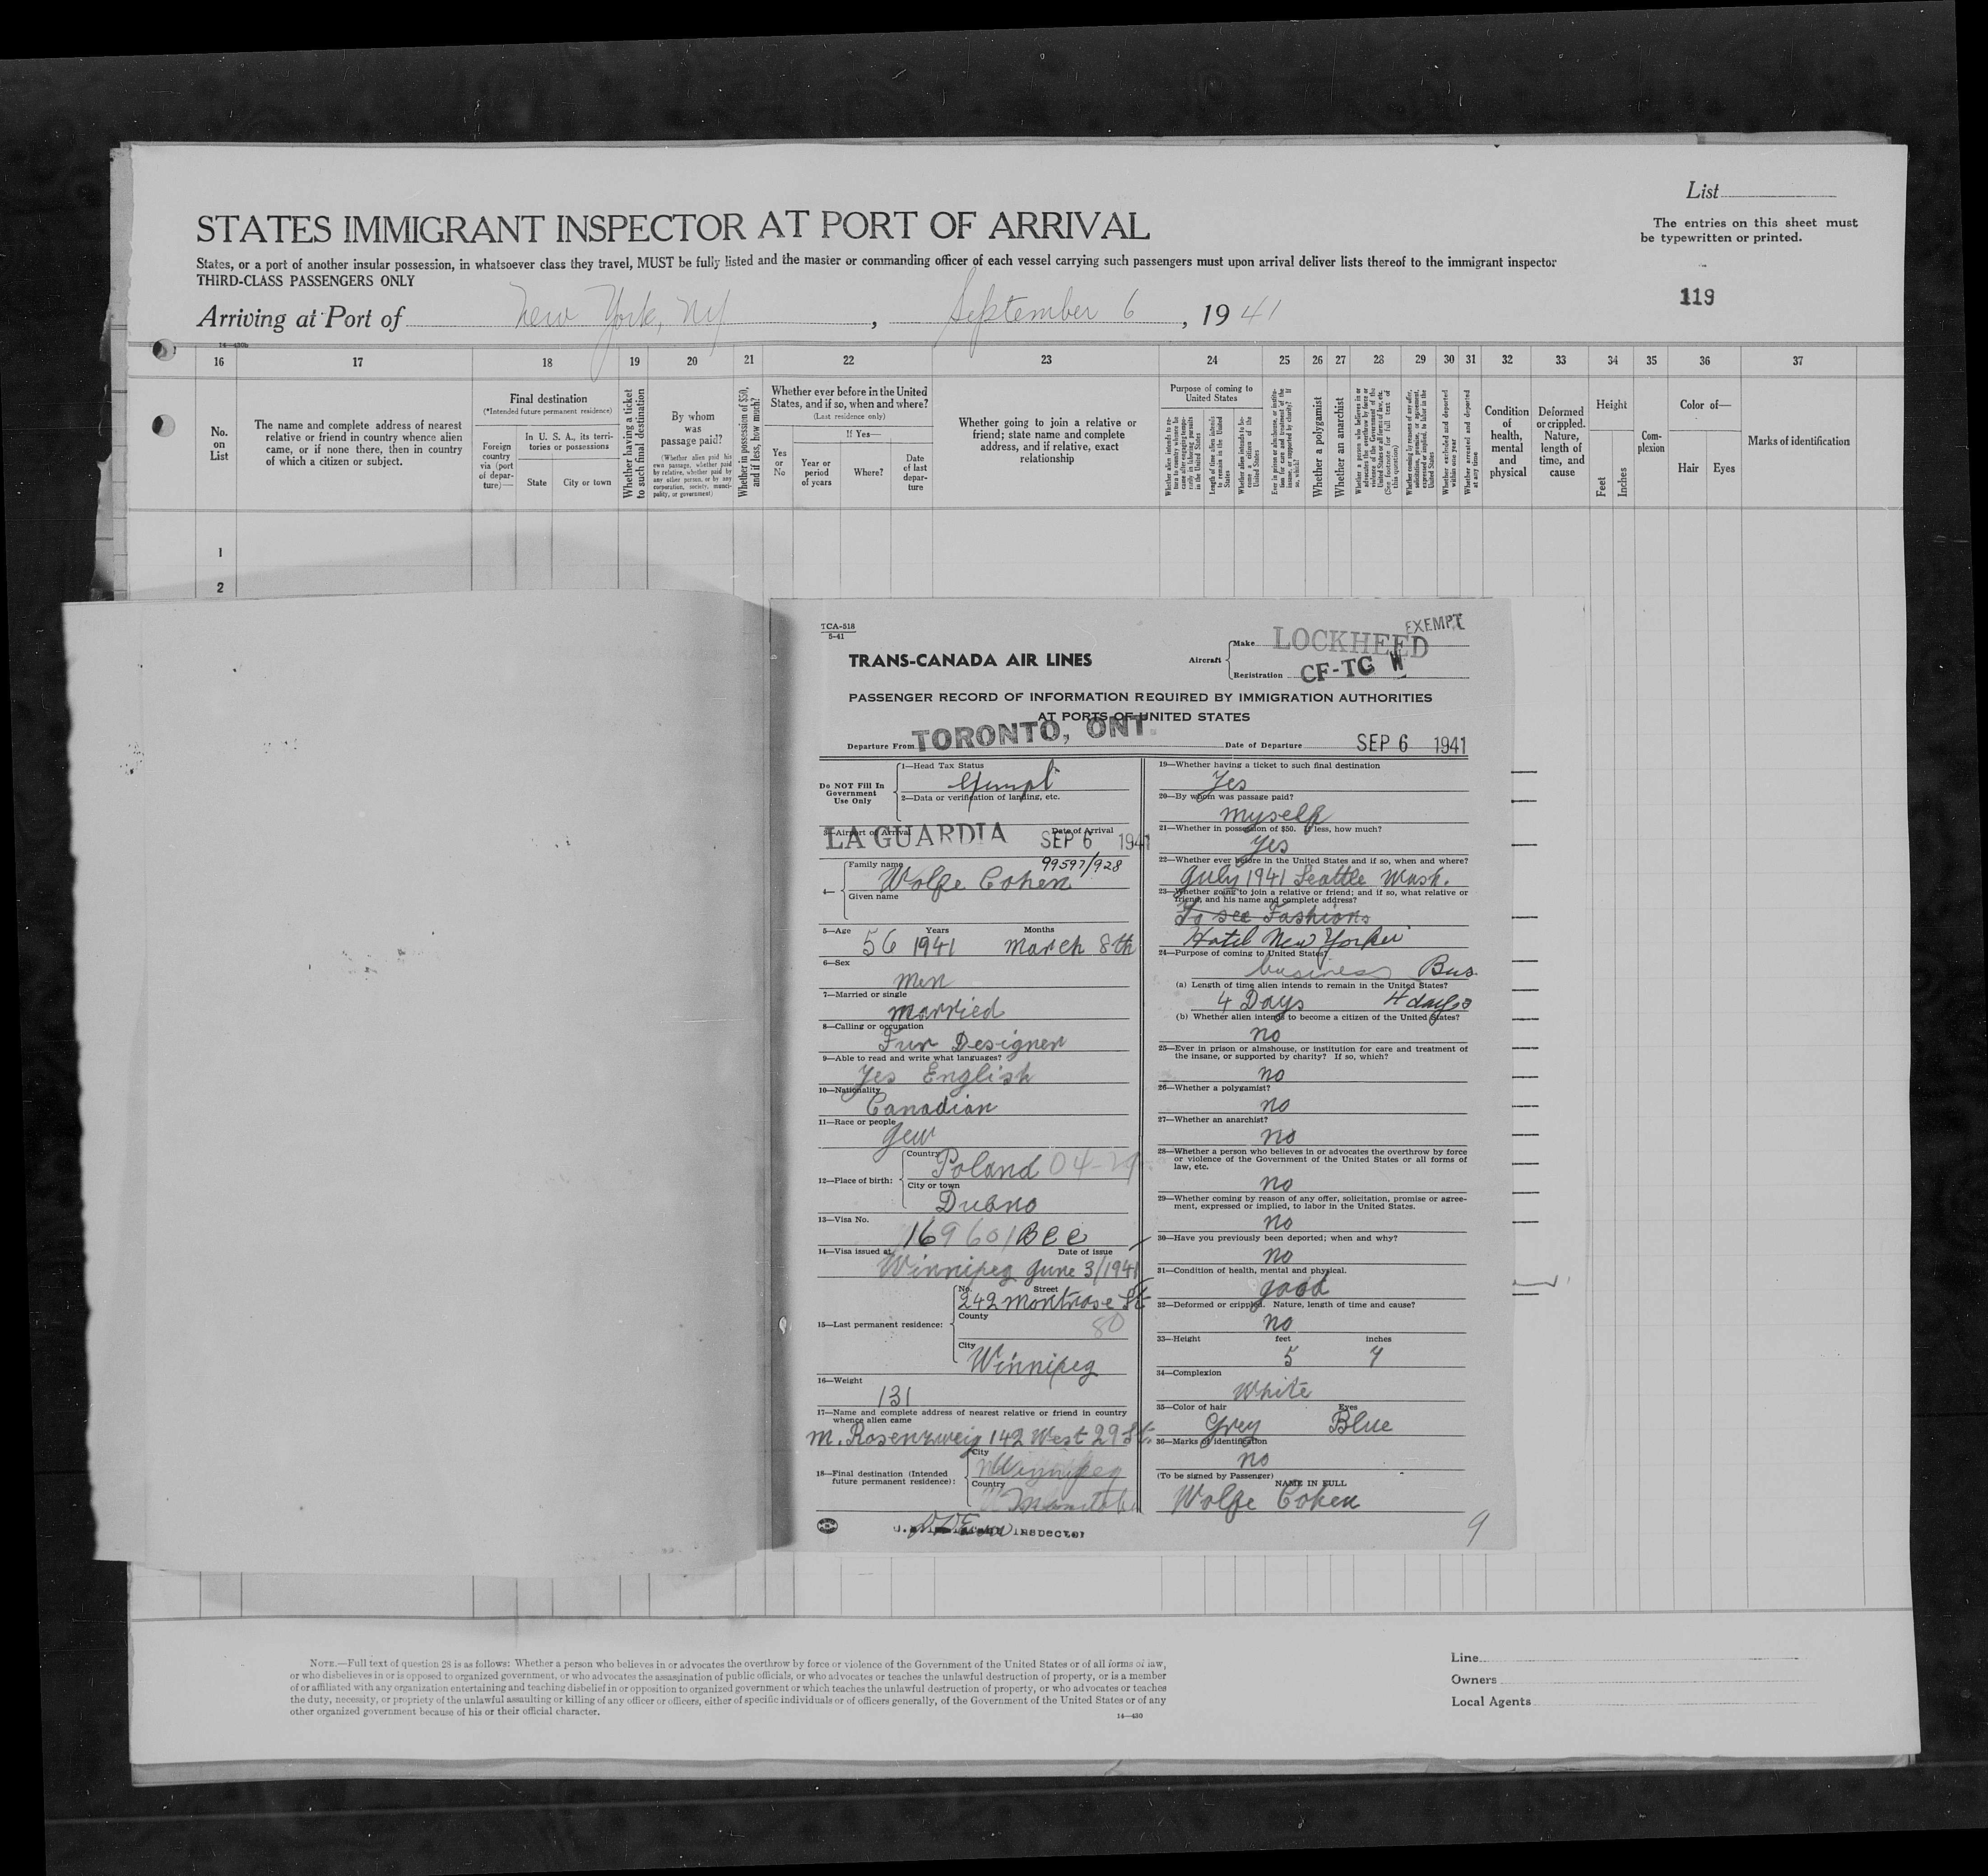 List
STATES IMMIGRANT INSPECTOR AT PORT OF ARRIVAL
The entries on this sheet must
be typewritten or printed.
States, or a port of another insular possession, in whatsoever class they travel, MUST be fully listed and the master or commanding officer of each vessel carrying such passengers must upon arrival deliver lists thereof to the immigrant inspector
THIRD-CLASS PASSENGERS ONLY
119
Arriving at Port of New York, NY, September 6, 1941
14-430b
16 17 18 19 20 21 22 23 24 25 26 27 28 29 30 31 32 33 34 35 36 37
No. on List
The name and complete address of nearest
relative or friend in country whence alien
came, or if none there, then in country
of which a citizen or subject.
Final destination
(*Intended future permanent residence)
Foreign country via (port of departure)—
In U. S. A., its territories or possessions
State
City or town
Whether having a ticket to such final destination
By whom was passage paid?
(Whether alien paid his own passage, whether paid by relative, whether paid by any other person, or by any corporation, society, municipality, or government)
Whether in possession of $50, and if less, how much?
Whether ever before in the United
States, and if so, when and where?
(Last residence only)
Yes or No
If Yes—
Year or period of years
Where?
Date of last departure
Whether going to join a relative or
friend; state name and complete
address, and if relative, exact
relationship
Purpose of coming to
United States
Whether alien intends to return to country whence he came after engaging temporarily in laboring pursuits in the United States
Length of time alien intends to remain in the United States
Whether alien intends to become a citizen of the United States
Ever in prison or almshouse, or institution for care and treatment of the insane, or supported by charity? If so, which?
Whether a polygamist
Whether an anarchist
Whether a person who believes in or advocates the overthrow by force or violence of the Government of the United States or all forms of law, etc. (See footnote for full text of this question)
Whether coming by reasons of any offer, solicitation, promise, or agreement, expressed or implied, to labor in the United States
Whether excluded and deported within one year
Whether arrested and deported at any time
Condition of health, mental and physical
Deformed or crippled. Nature, length of time, and cause
Height
Feet
Inches
Complexion
Color of—
Hair
Eyes
Marks of identification
1
2
TCA-518
5-41
EXEMPT
TRANS-CANADA AIR LINES
Aircraft
Make LOCKHEED
Registration CF-TC W
PASSENGER RECORD OF INFORMATION REQUIRED BY IMMIGRATION AUTHORITIES
AT PORTS OF UNITED STATES
Departure From TORONTO, ONT.
Date of Departure SEP 6 1941
Do NOT Fill In
Government
Use Only
1—Head Tax Status
Exempt
2—Data or verification of landing, etc.
3—Airport of Arrival Date of Arrival
LA GUARDIA SEP 6 1941
99597/928
4— Family name
Wolfe Cohen
Given name
5—Age Years Months
56 1941 March 8th
6—Sex
men
7—Married or single
married
8—Calling or occupation
Fur Designer
9—Able to read and write what languages?
Yes English
10—Nationality
Canadian
11—Race or people
Jew
12—Place of birth:
Country
Poland
City or town
Dubno
13—Visa No.
169601 BCC
14—Visa issued at Date of issue
Winnipeg June 3/1941
15—Last permanent residence:
No. Street
242 Montrose St
County
80
City
Winnipeg
16—Weight
131
17—Name and complete address of nearest relative or friend in country
whence alien came
M. Rosenzweig 142 West 29 St.
18—Final destination (Intended
future permanent residence):
City
Winnipeg
Country
Manitoba
Inspector
19—Whether having a ticket to such final destination
Yes
20—By whom was passage paid?
myself
21—Whether in possession of $50. If less, how much?
Yes
22—Whether ever before in the United States and if so, when and where?
July 1941 Seattle Wash.
23—Whether going to join a relative or friend; and if so, what relative or
friend, and his name and complete address?
To see Fashions
Hotel New Yorker
24—Purpose of coming to United States?
business Bus.
(a) Length of time alien intends to remain in the United States?
4 Days 4 days
(b) Whether alien intends to become a citizen of the United States?
no
25—Ever in prison or almshouse, or institution for care and treatment of
the insane, or supported by charity? If so, which?
no
26—Whether a polygamist?
no
27—Whether an anarchist?
no
28—Whether a person who believes in or advocates the overthrow by force
or violence of the Government of the United States or all forms of
law, etc.
no
29—Whether coming by reason of any offer, solicitation, promise or agree-
ment, expressed or implied, to labor in the United States.
no
30—Have you previously been deported; when and why?
no
31—Condition of health, mental and physical.
good
32—Deformed or crippled. Nature, length of time and cause?
no
33—Height feet inches
5 4
34—Complexion
White
35—Color of hair Eyes
Grey Blue
36—Marks of identification
no
(To be signed by Passenger)
NAME IN FULL
Wolfe Cohen
9
NOTE.—Full text of question 28 is as follows: Whether a person who believes in or advocates the overthrow by force or violence of the Government of the United States or of all forms of law,
or who disbelieves in or is opposed to organized government, or who advocates the assassination of public officials, or who advocates or teaches the unlawful destruction of property, or is a member
of or affiliated with any organization entertaining and teaching disbelief in or opposition to organized government or which teaches the unlawful destruction of property, or who advocates or teaches
the duty, necessity, or propriety of the unlawful assaulting or killing of any officer or officers, either of specific individuals or of officers generally, of the Government of the United States or of any
other organized government because of his or their official character.
14—430
Line
Owners
Local Agents